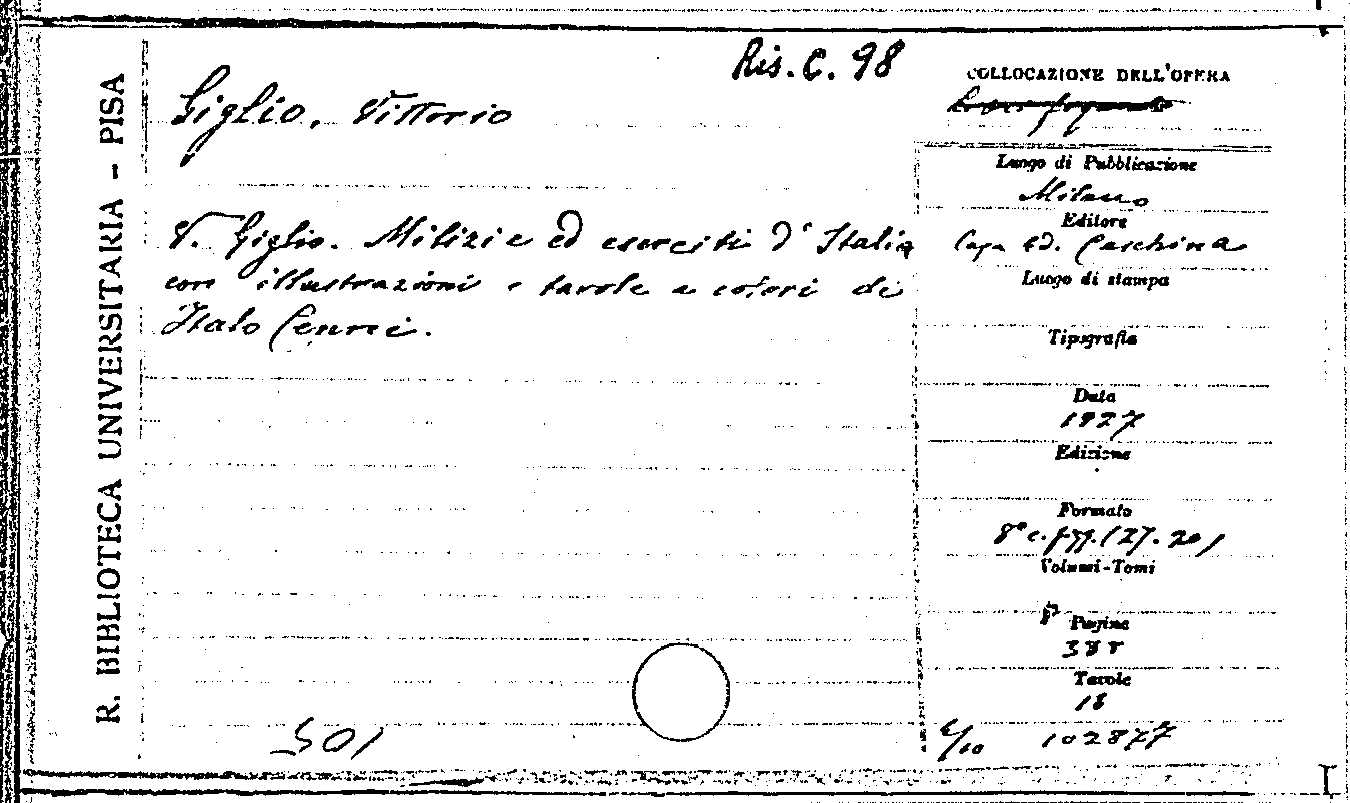 R. BIBLIOTECA UNIVERSITARIA - PISA
Ris. C. 98
Giglio, Vittorio
V. Giglio. Milizie ed eserciti d'Italia
con illustrazioni e tavole a colori di
Italo Cenni.
501
COLLOCAZIONE DELL'OPERA
Luogo di Pubblicazione
Milano
Editore
Casa Ed. Ceschina
Luogo di stampa
Tipografia
Data
1927
Edizione
Formato
8° c. fig. (27. 20)
Volumi-Tomi
Pagine
388
Tavole
18
102877